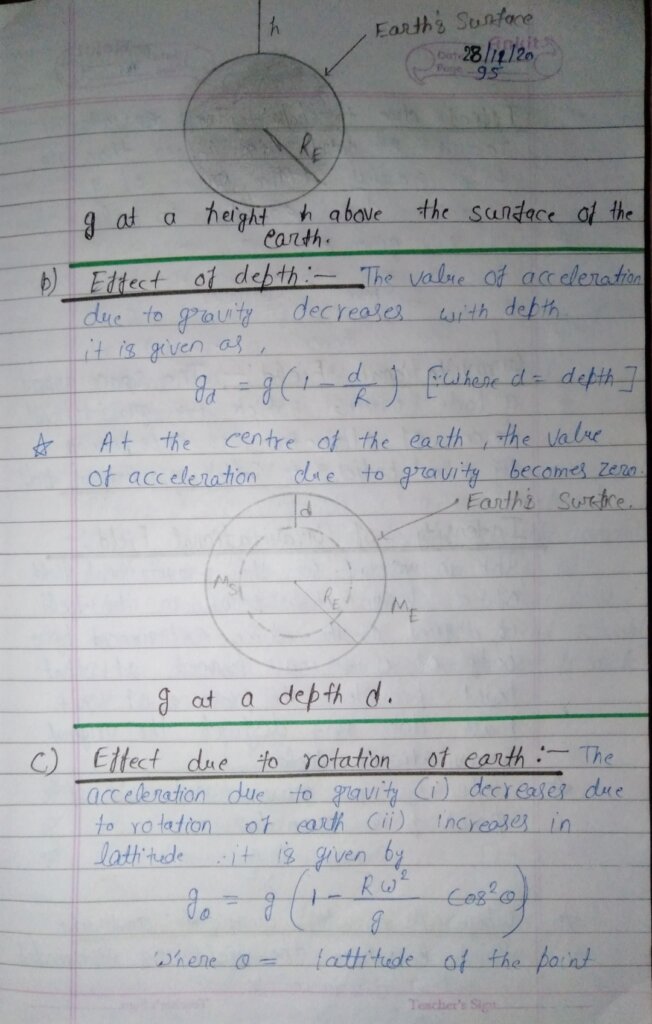 h
Earth's Surface
Date 28/12/20
Page 95
R_E
g at a height h above the surface of the
earth.
b) Effect of depth :— The value of acceleration
due to gravity decreases with depth
it is given as,
g_d = g(1 - d/R) [∵ where d = depth]
☆ At the centre of the earth, the value
of acceleration due to gravity becomes zero.
Earth's Surface.
d
M_S
R_E
M_E
g at a depth d.
C) Effect due to rotation of earth :— The
acceleration due to gravity (i) decreases due
to rotation of earth (ii) increases in
lattitude ∴ it is given by
g_θ = g(1 - Rω²/g Cos²θ)
where θ = lattitude of the point
Teacher's Sign